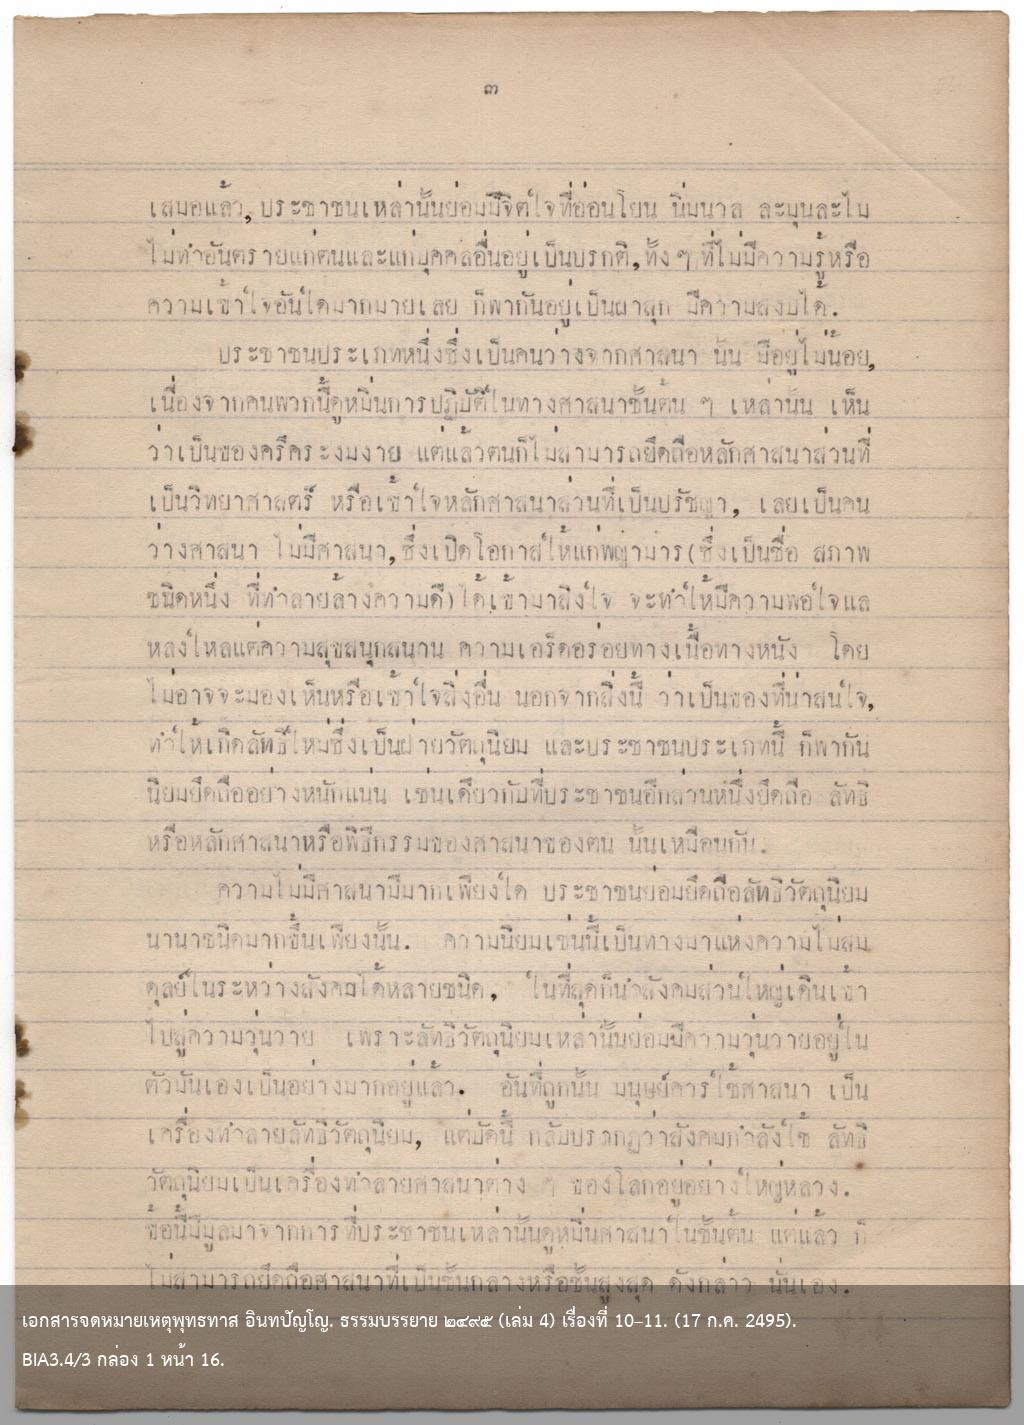 ๓
เสมอแล้ว, ประชาชนเหล่านั้นย่อมมีจิตใจที่อ่อนโยน นิ่มนวล ละมุนละไม
ไม่ทำอันตรายแก่ตนและแก่บุคคลอื่นอยู่เป็นปรกติ, ทั้ง ๆ ที่ไม่มีความรู้หรือ
ความเข้าใจอันใดมากมายเลย ก็พากันอยู่เป็นผาสุก มีความสงบได้.
ประชาชนประเภทหนึ่งซึ่งเป็นคนว่างจากศาสนา นั้น มีอยู่ไม่น้อย,
เนื่องจากคนพวกนี้ดูหมิ่นการปฏิบัติในทางศาสนาชั้นต้น ๆ เหล่านั้น เห็น
ว่าเป็นของครึคระงมงาย แต่แล้วตนก็ไม่สามารถยึดถือหลักศาสนาส่วนที่
เป็นวิทยาศาสตร์ หรือเข้าใจหลักศาสนาส่วนที่เป็นปรัชญา, เลยเป็นคน
ว่างศาสนา ไม่มีศาสนา, ซึ่งเปิดโอกาสให้แก่พญามาร(ซึ่งเป็นชื่อ สภาพ
ชนิดหนึ่ง ที่ทำลายล้างความดี)ได้เข้ามาสิงใจ จะทำให้มีความพอใจแล
หลงใหลแต่ความสุขสนุกสนาน ความเอร็ดอร่อยทางเนื้อทางหนัง โดย
ไม่อาจจะมองเห็นหรือเข้าใจสิ่งอื่น นอกจากสิ่งนี้ ว่าเป็นของที่น่าสนใจ,
ทำให้เกิดลัทธิใหม่ซึ่งเป็นฝ่ายวัตถุนิยม และประชาชนประเภทนี้ ก็พากัน
นิยมยึดถืออย่างหนักแน่น เช่นเดียวกับที่ประชาชนอีกส่วนหนึ่งยึดถือ ลัทธิ
หรือหลักศาสนาหรือพิธีกรรมของศาสนาของตน นั้นเหมือนกัน.
ความไม่มีศาสนามีมากเพียงใด ประชาชนย่อมยึดถือลัทธิวัตถุนิยม
นานาชนิดมากขึ้นเพียงนั้น. ความนิยมเช่นนี้เป็นทางมาแห่งความไม่สม
ดุลย์ในระหว่างสังคมได้หลายชนิด, ในที่สุดก็นำสังคมส่วนใหญ่เดินเข้า
ไปสู่ความวุ่นวาย เพราะลัทธิวัตถุนิยมเหล่านั้นย่อมมีความวุ่นวายอยู่ใน
ตัวมันเองเป็นอย่างมากอยู่แล้ว. อันที่ถูกนั้น มนุษย์ควรใช้ศาสนา เป็น
เครื่องทำลายลัทธิวัตถุนิยม, แต่บัดนี้ กลับปรากฏว่าสังคมกำลังใช้ ลัทธิ
วัตถุนิยมเป็นเครื่องทำลายศาสนาต่าง ๆ ของโลกอยู่อย่างใหญ่หลวง.
ข้อนี้มีมูลมาจากการที่ประชาชนเหล่านั้นดูหมิ่นศาสนาในชั้นต้น แต่แล้ว ก็
ไม่สามารถยึดถือศาสนาที่เป็นชั้นกลางหรือชั้นสูงสุด ดังกล่าว นั่นเอง.
เอกสารจดหมายเหตุพุทธทาส อินทปัญโญ. ธรรมบรรยาย ๒๔๙๕ (เล่ม 4) เรื่องที่ 10–11. (17 ก.ค. 2495).
BIA3.4/3 กล่อง 1 หน้า 16.